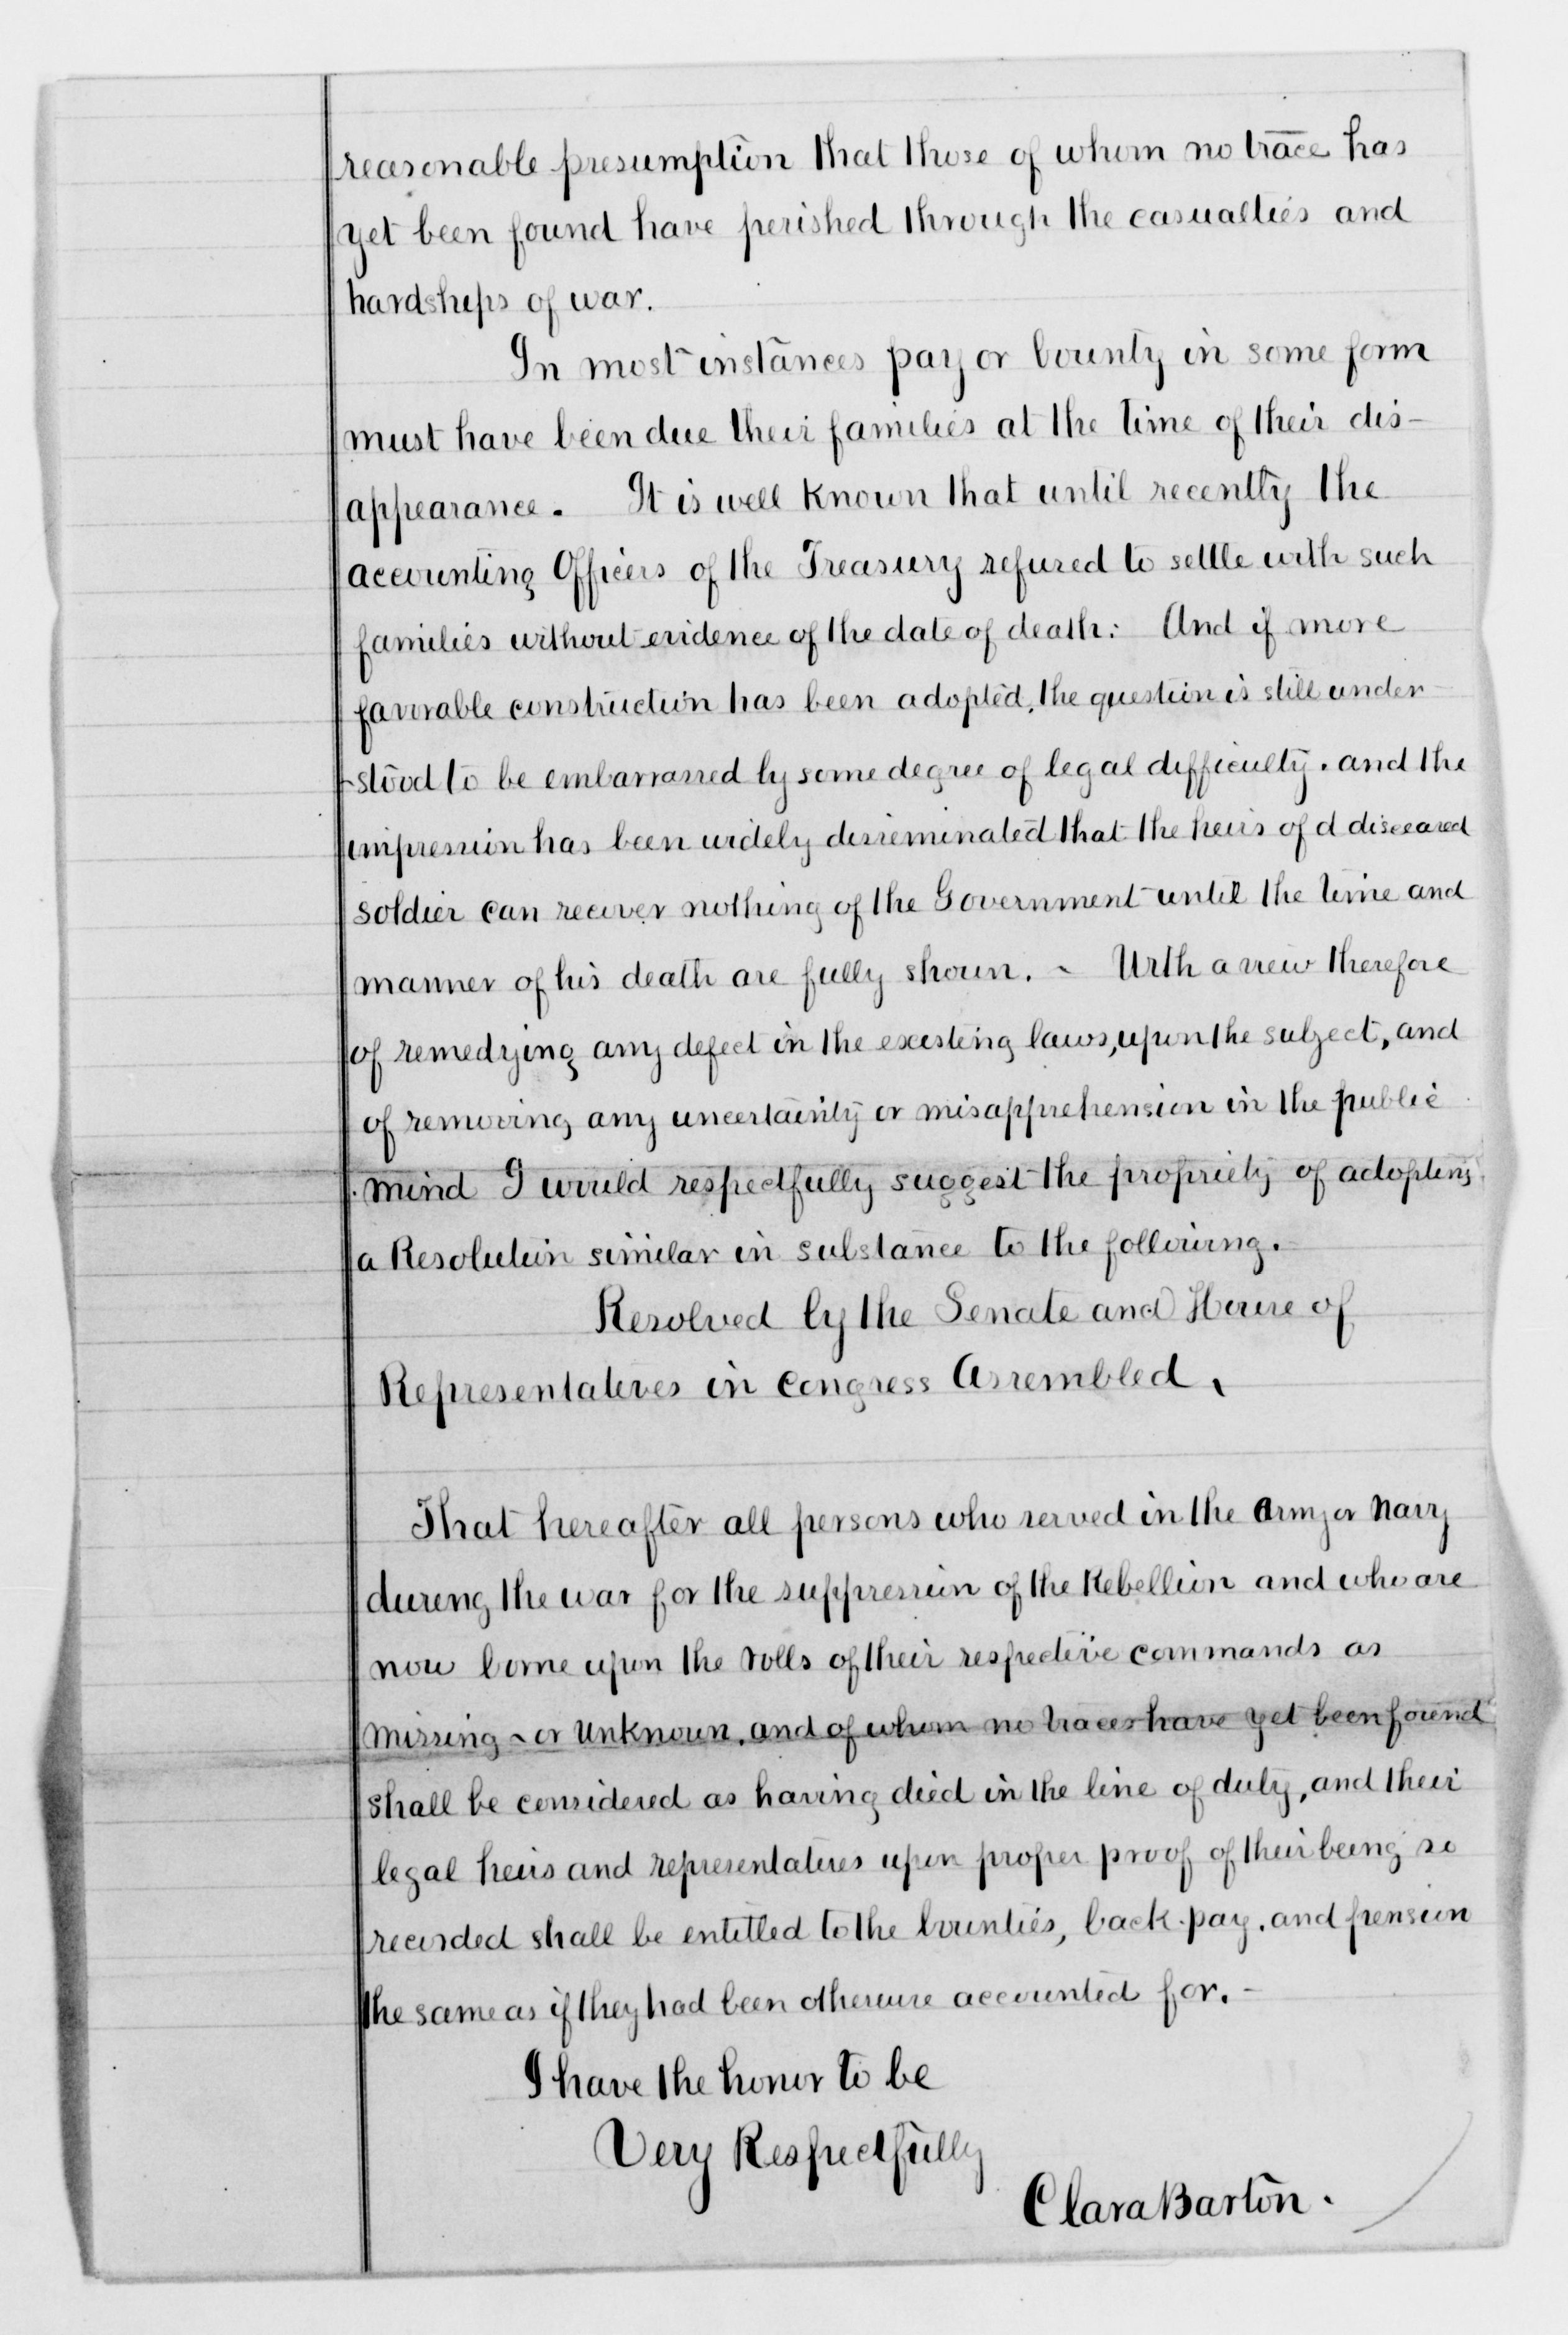 reasonable presumption that those of whom no trace has
yet been found have perished through the casualties and
hardships of war.
In most instances pay or bounty in some form
must have been due their families at the time of their dis-
appearance. It is well known that until recently the
accounting Officers of the Treasury refused to settle with such
families without evidence of the date of death: And if more
favorable construction has been adopted, the question is still under-
-stood to be embarrassed by some degree of legal difficulty. and the
impression has been widely disseminated that the heirs of d diseased
soldier can recover nothing of the Government until the time and
manner of his death are fully shown. - With a view therefore
of remedying any defect in the existing laws, upon the subject, and
of removing any uncertainity or misapprehension in the public
mind I would respectfully suggest the propriety of adopting
a Resolution similar in substance to the following.
Resolved by the Senate and House of
Representatives in Congress Assembled,
That hereafter all persons who served in the Army or Navy
during the war for the suppression of the Rebellion and who are
now borne upon the rolls of their respective commands as
missing - or unknown. and of whom no traces have yet been found
shall be considered as having died in the line of duty, and their
legal heirs and representatives upon proper proof of their being so
recorded shall be entitled to the bounties, back-pay. and pension
the same as if they had been otherwise accounted for. -
I have the honor to be
Very Respectfully
Clara Barton.